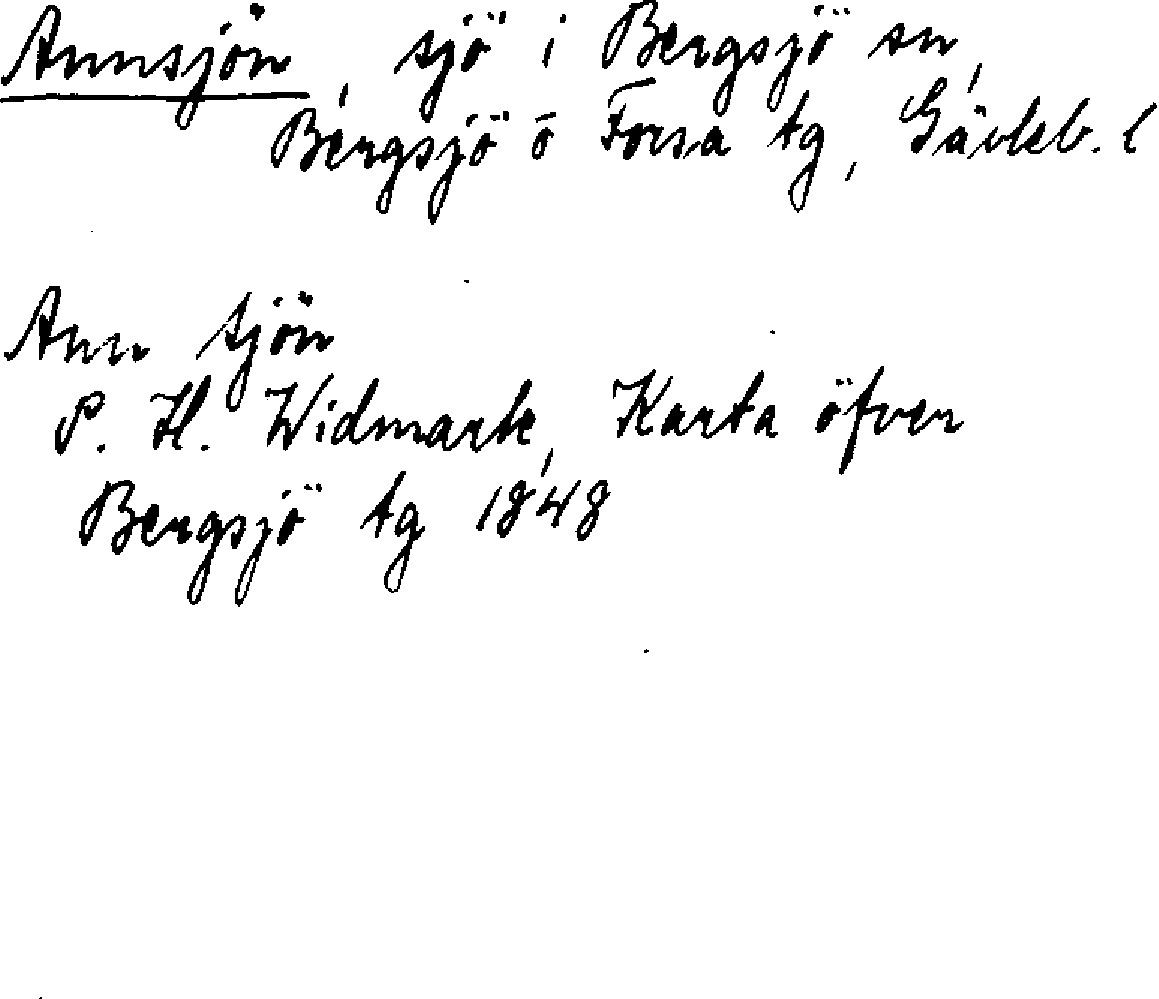 Annsjön, sjö i Bergsjö sn,
Bergsjö o Forsa tg, Gävleb. l
Ann sjön
P. H. Widmark, Karta öfver
Bergsjö tg 1848